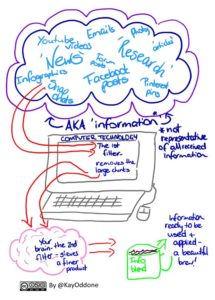 Youtube videos
Emails
Photos
News
Research
articles
Infographics
Forum posts
Snap chats
Facebook posts
Pinterest pins
AKA 'information'*
*not representative of all received information
COMPUTER TECHNOLOGY
The 1st filter-
removes the large chunks
Your brain- the 2nd filter = gives a finer product
Info blend
Information ready to be used + applied- a beautiful brew!
By @KayOddone